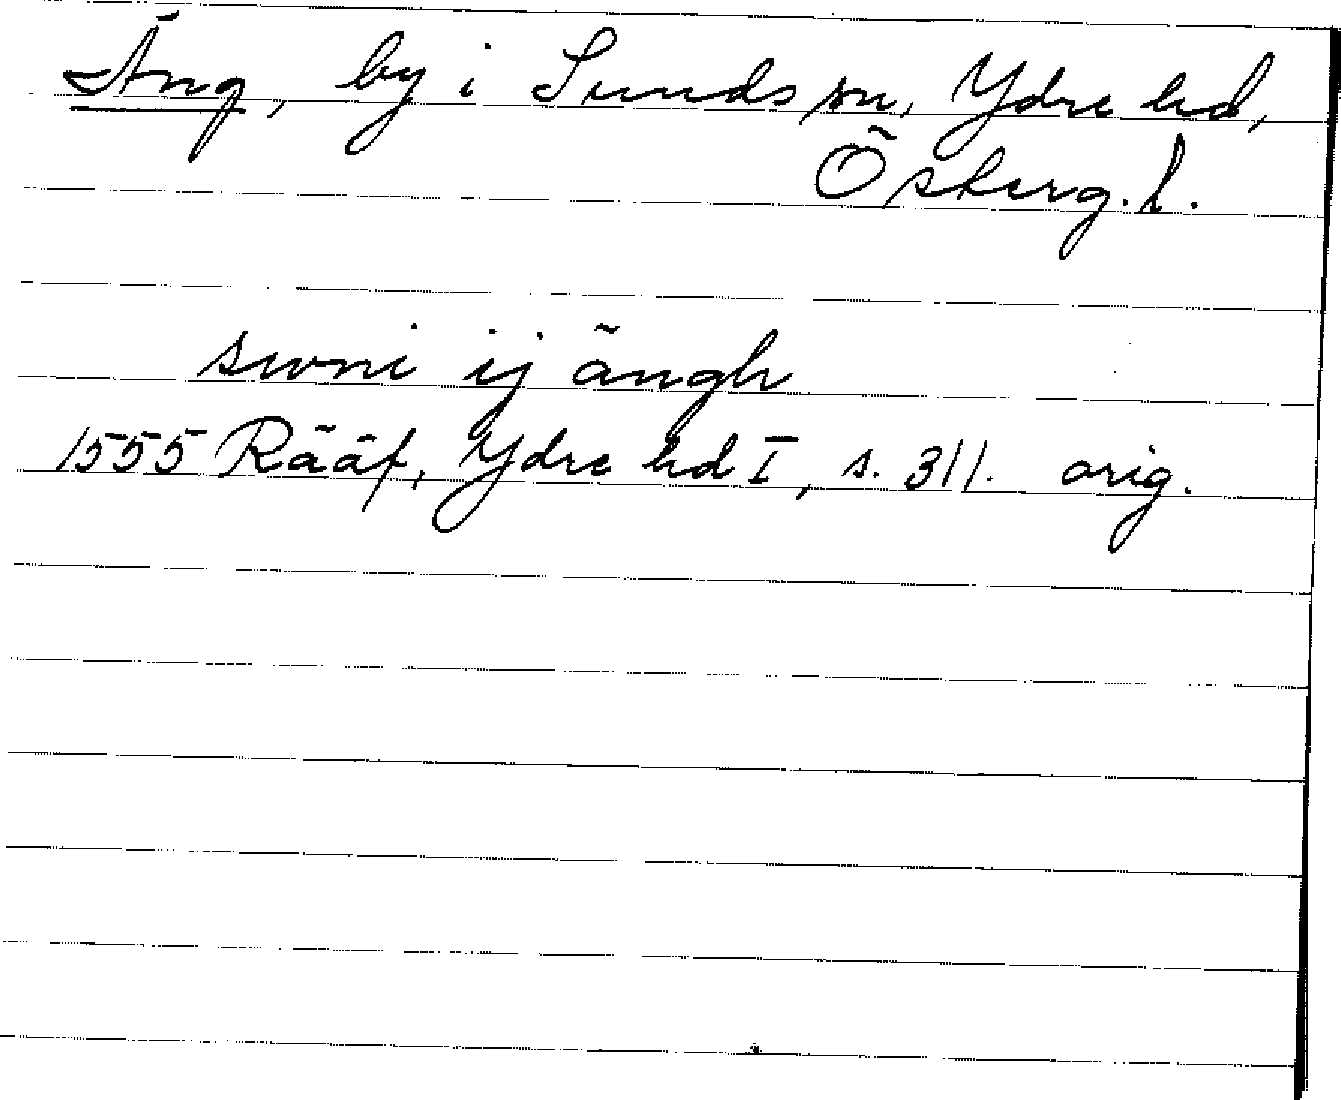 Äng, by i Sunds sn, Ydre hd,
Österg. l.
swni ij ängh
1555 Rääf, Ydre hd I, s. 311. orig.